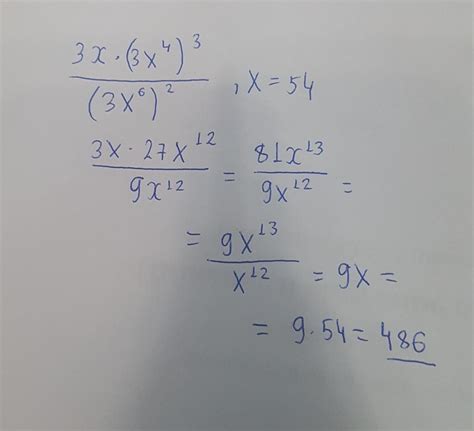 3x · (3x⁴)³
(3x⁶)² , x = 54
3x · 27x¹² / 9x¹² = 81x¹³ / 9x¹² =
= 9x¹³ / x¹² = 9x =
= 9 · 54 = 486